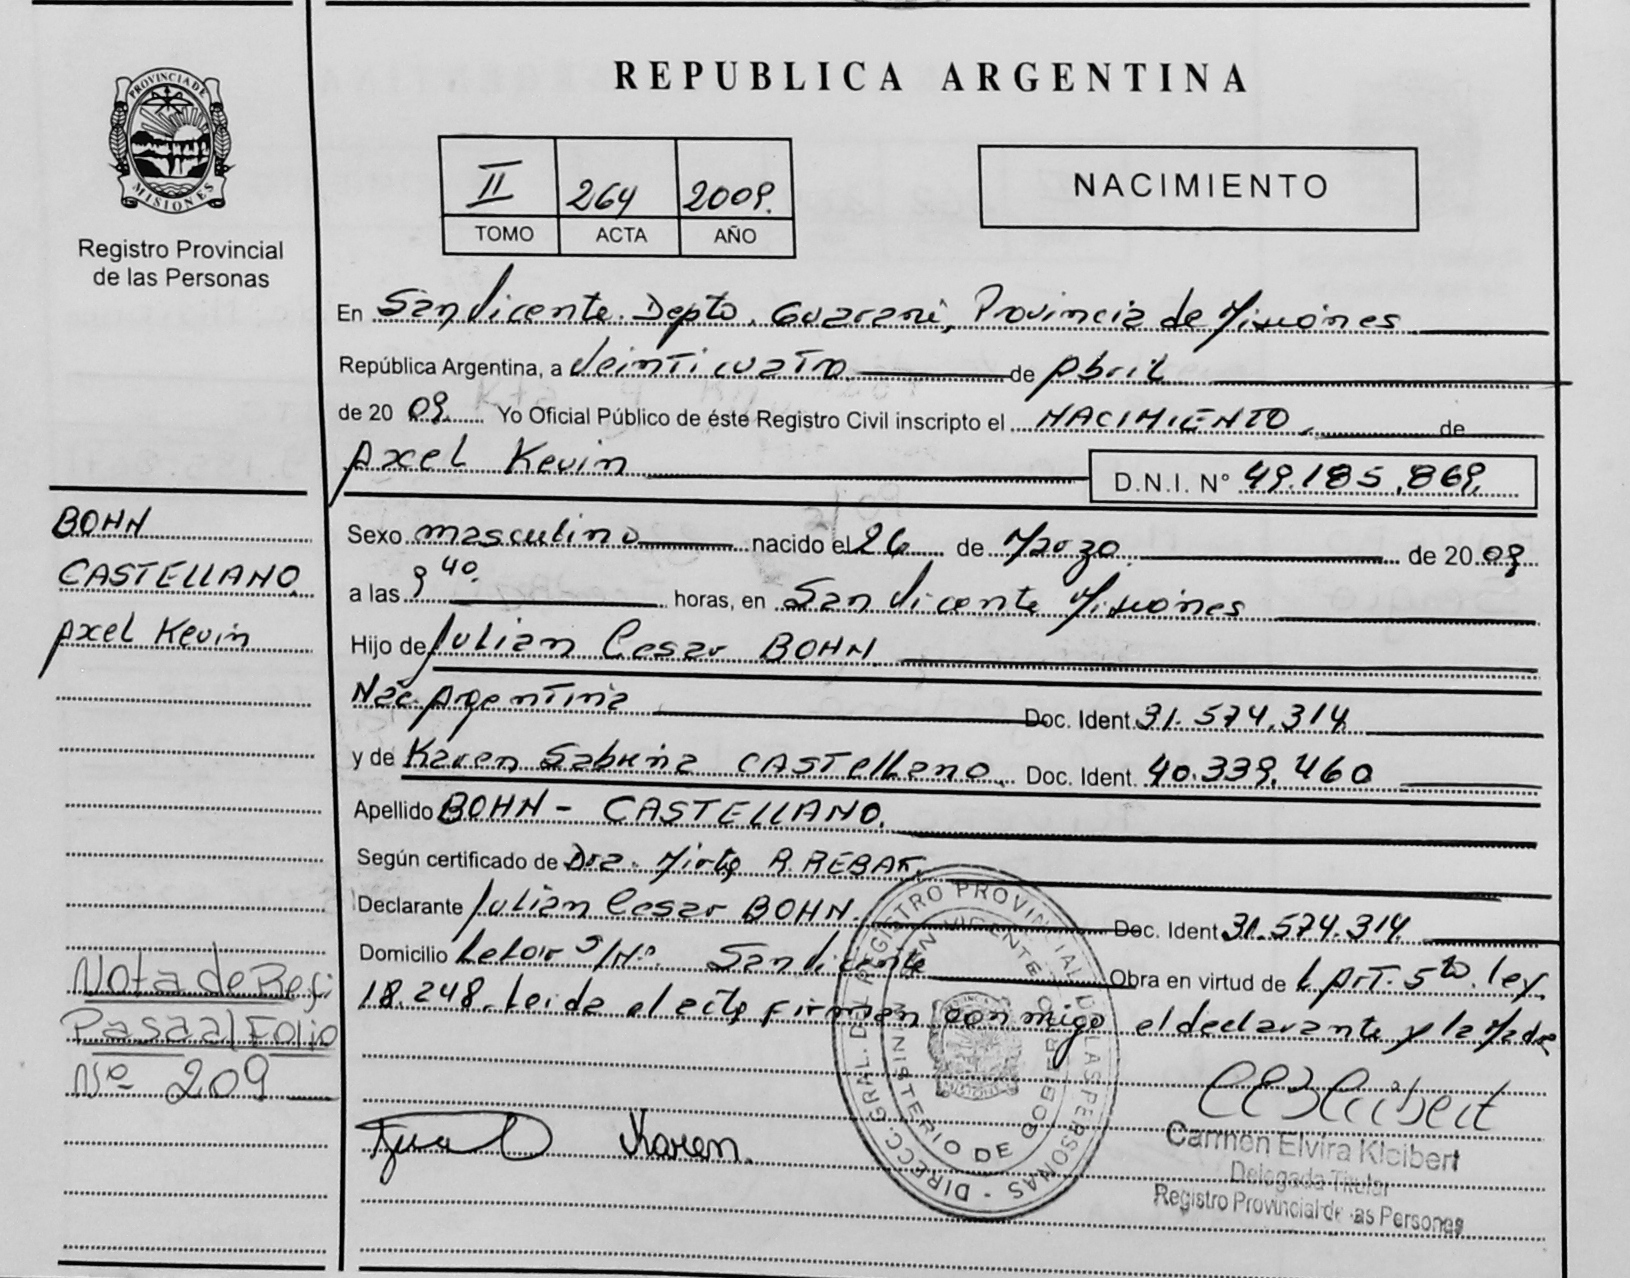 REPUBLICA ARGENTINA
PROVINCIA DE
MISIONES
Registro Provincial
de las Personas
II 264 2009.
TOMO ACTA AÑO
NACIMIENTO
En San Vicente. Depto. Guarani, Provincia de Misiones
República Argentina, a Veinticuatro de Abril
de 20 09 Yo Oficial Público de éste Registro Civil inscripto el NACIMIENTO, de
Axel Kevin D.N.I. N° 49.185.869,
BOHN
CASTELLANO,
Axel Kevin
Sexo masculino nacido el 26 de Marzo de 20 09
a las 9 40. horas, en San Vicente Misiones
Hijo de Julian Cesar BOHN
Nac. Argentina Doc. Ident. 31.574.314
y de Karen Sabrina CASTELLANO. Doc. Ident. 40.339.460
Apellido BOHN - CASTELLANO.
Según certificado de Dra. Mirta R.
Declarante Julian Cesar BOHN. Doc. Ident 31.574.314.
Domicilio S/Nº. San Vicente Obra en virtud de L Art. 5to. ley.
18.248. Leida el acta firman conmigo el declarante y la Madre
Nota de Ref:
Pasa al Folio
Nº 209
Karen.
DIRECC. GRAL. DEL REGISTRO PROVINCIAL DE LAS PERSONAS -
SAN VICENTE
MINISTERIO DE GOBIERNO
Carmen Elvira Kleibert
Delegada Titular
Registro Provincial de las Personas